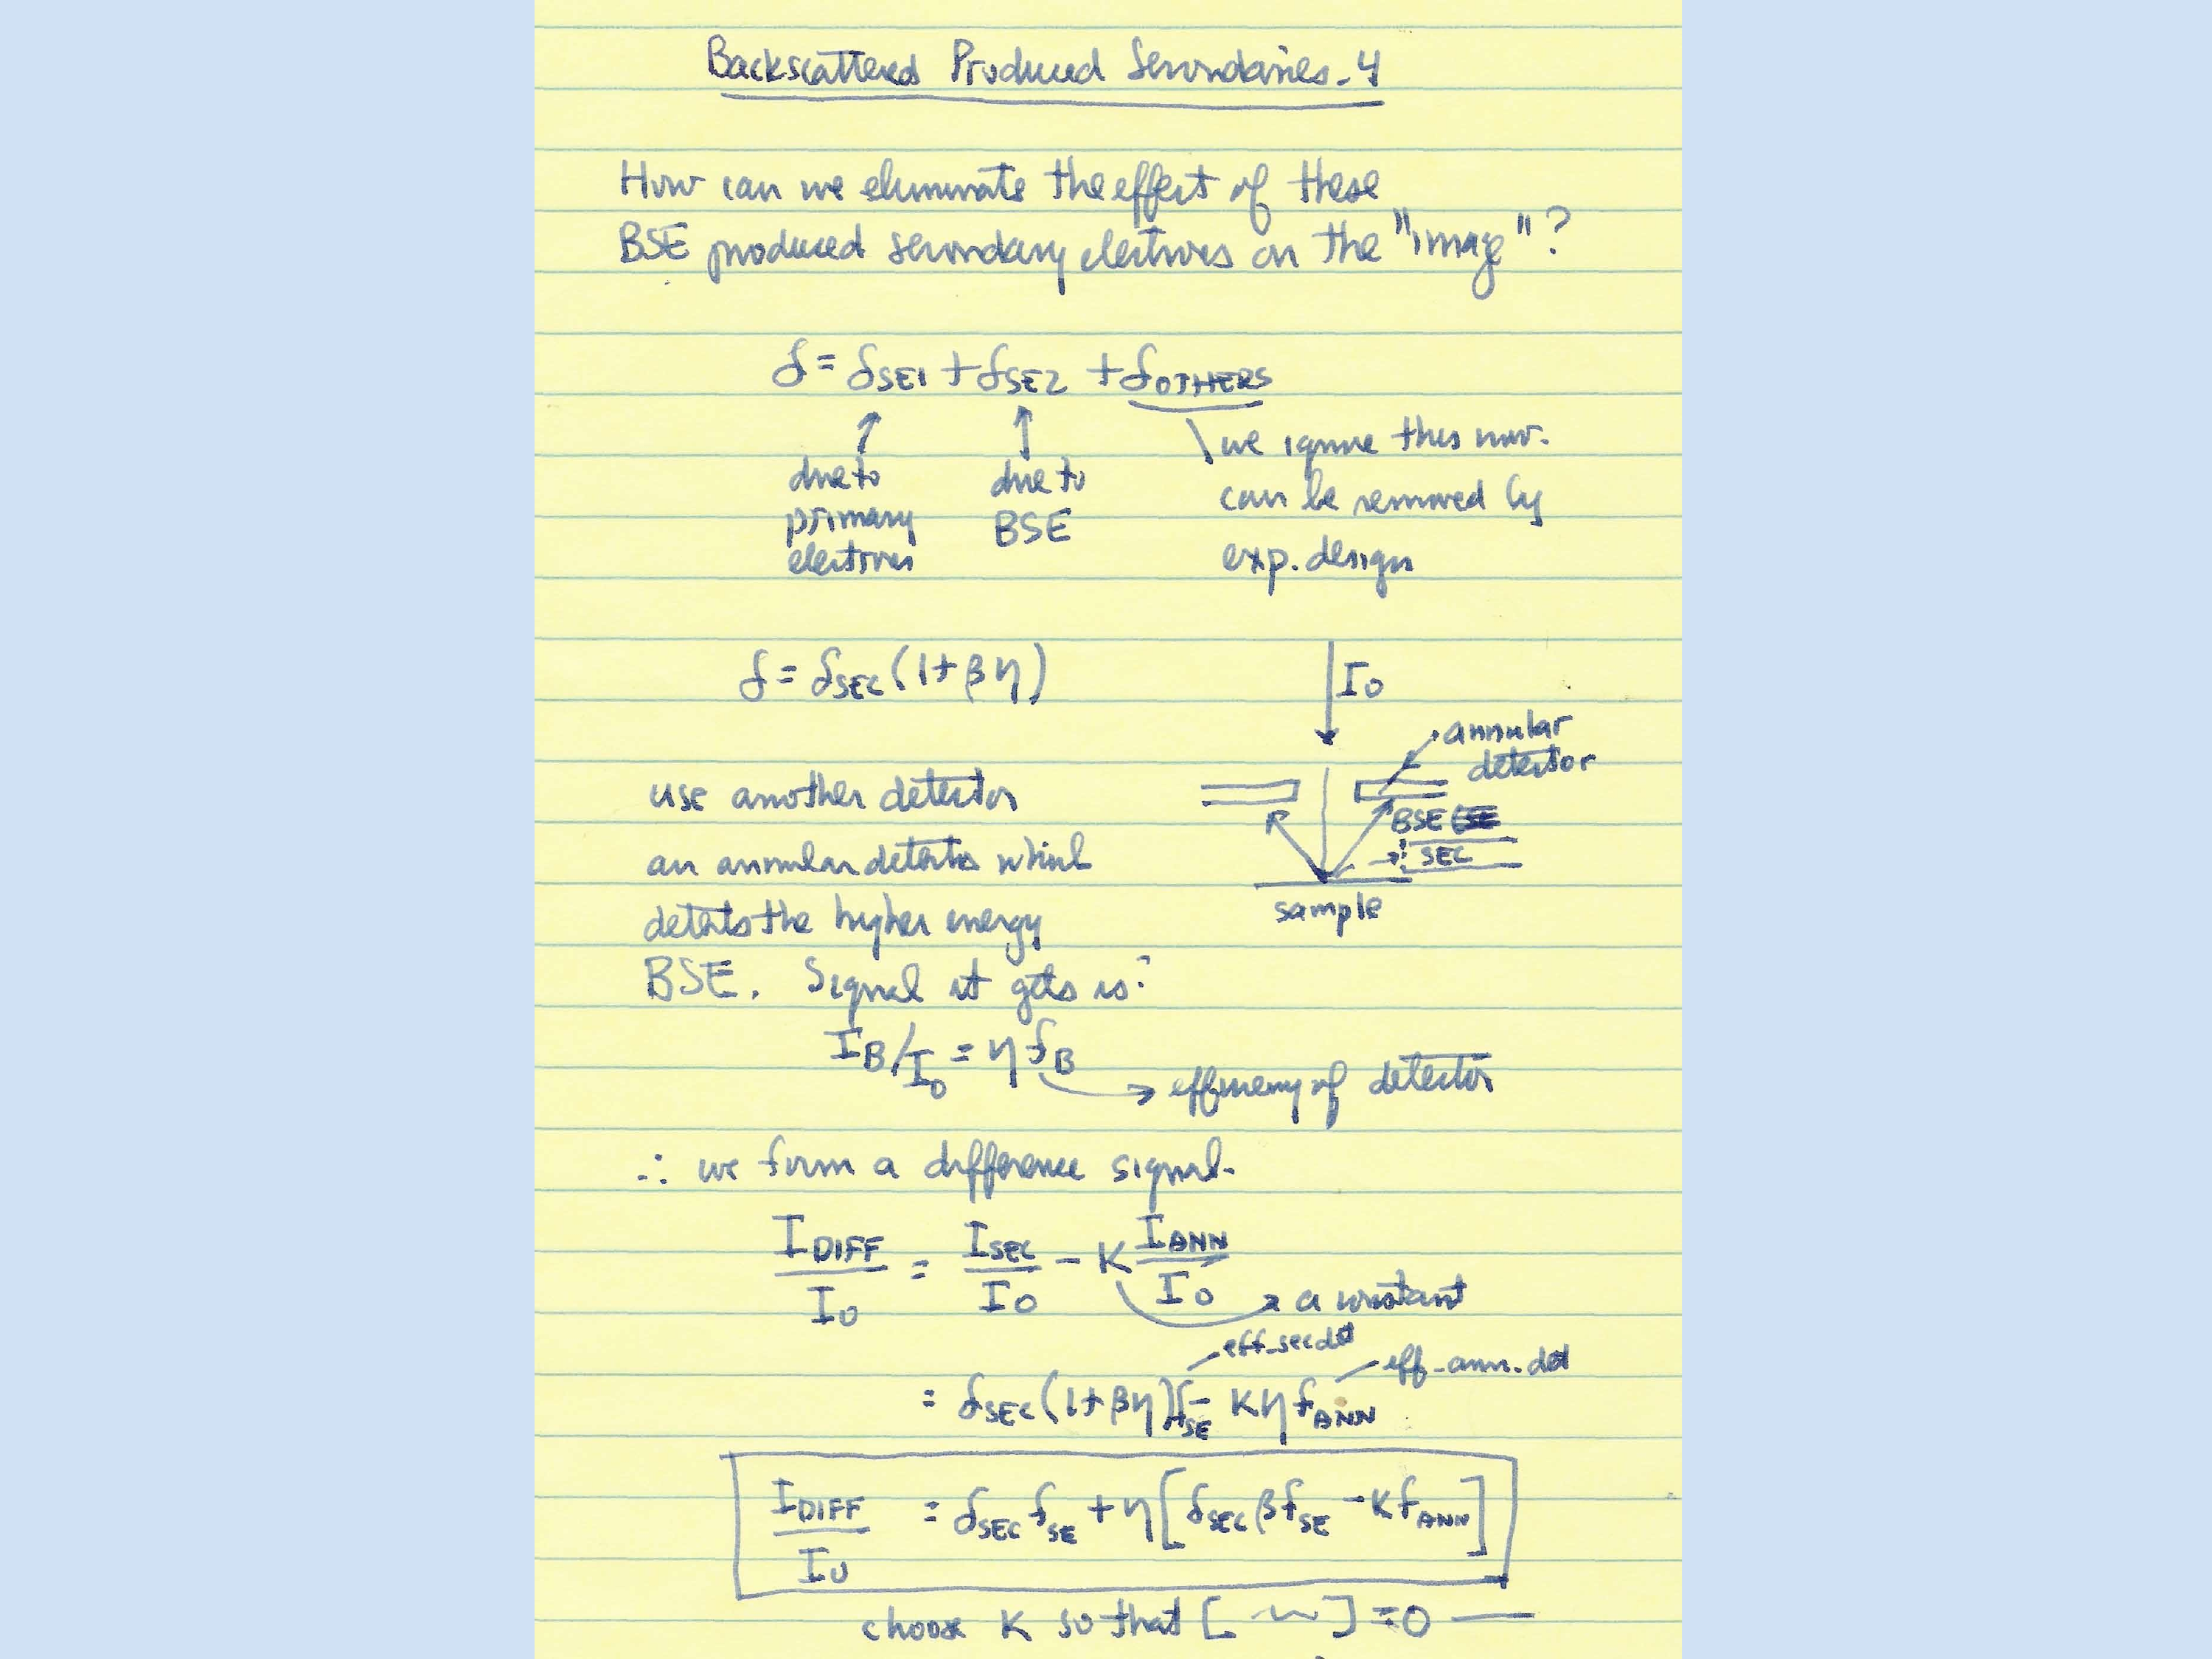 Backscattered Produced Secondaries - 4
How can we eliminate the effect of these
BSE produced secondary electrons on the "image"?
δ = δSE1 + δSE2 + δOTHERS
due to primary electrons
due to BSE
we ignore this now.
can be removed by
exp. design
δ = δSEC (1 + βη)
I0
annular
detector
BSE
SEC
sample
use another detector
an annular detector which
detects the higher energy
BSE. Signal it gets is:
IB/I0 = η fB
efficiency of detector
∴ we form a difference signal.
IDIFF/I0 = ISEC/I0 - K IANN/I0
a constant
eff_sec det
eff_ann. det
= δSEC (1 + βη) fSE - Kη fANN
IDIFF/I0 = δSEC fSE + η [δSEC β fSE - K fANN]
choose K so that [ ~ ] = 0 —